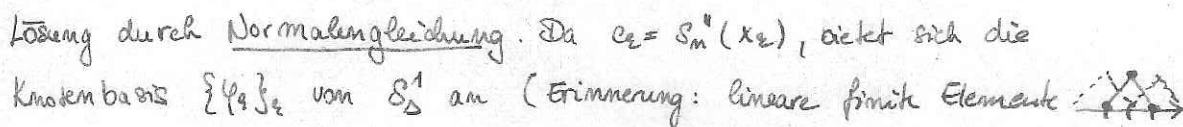 Lösung durch Normalengleichung. Da c_k = S_n''(x_k), bietet sich die
Knotenbasis {φ_k}_k von S_Δ^1 an (Erinnerung: lineare finite Elemente